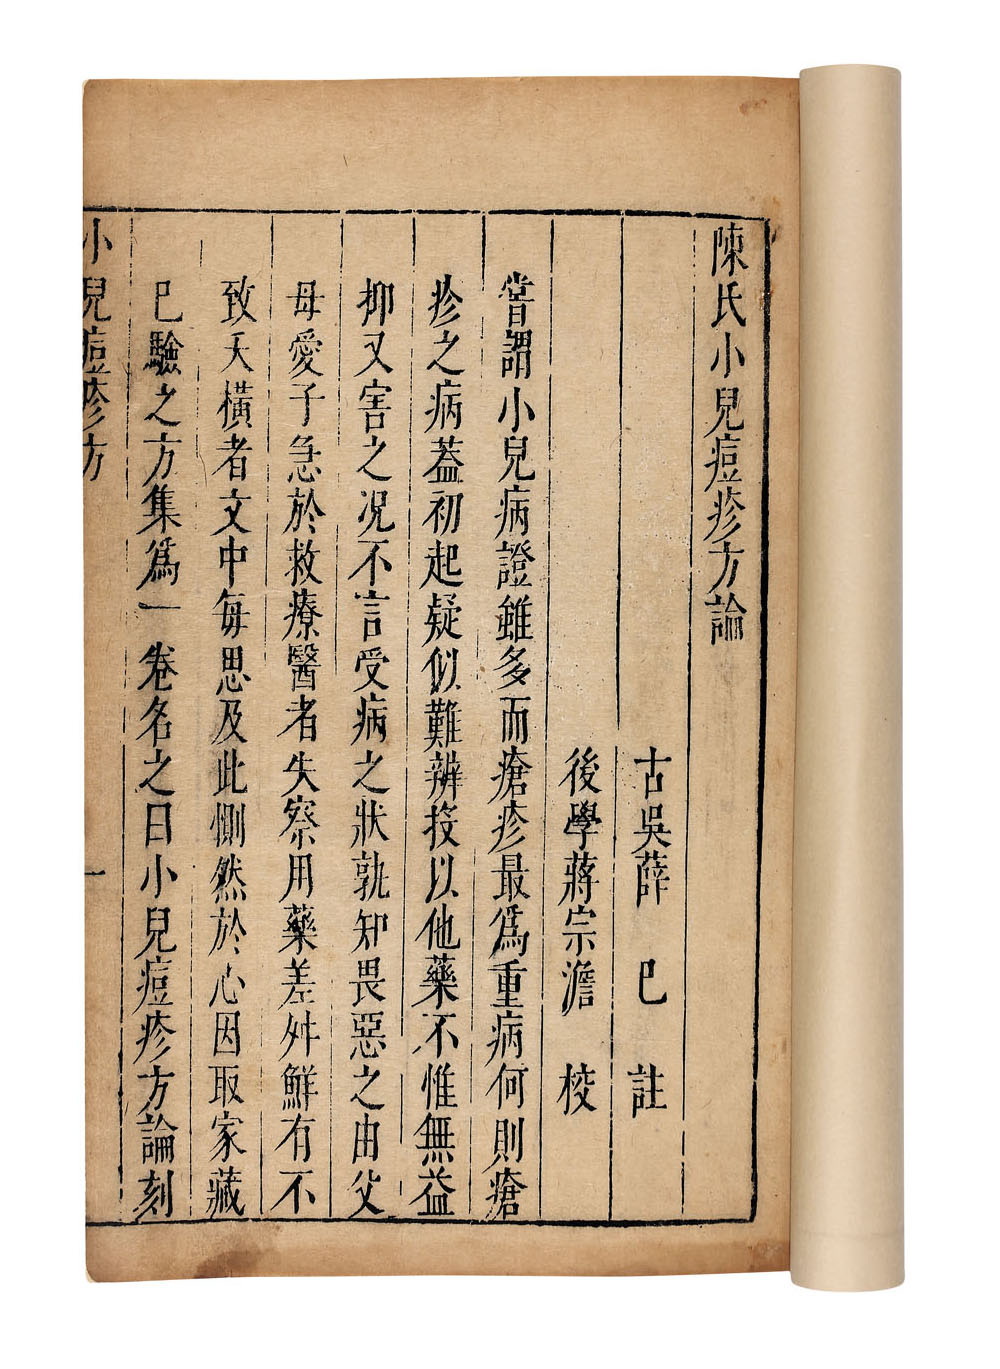 陳氏小兒痘疹方論
古吳薛 已 註
後學蔣宗澹 校
嘗謂小兒病證雖多而瘡疹最爲重病何則瘡
疹之病蓋初起疑似難辨投以他藥不惟無益
抑又害之况不言受病之狀孰知畏惡之由父
母愛子急於救療醫者失察用藥差舛鮮有不
致夭橫者文中每思及此惻然於心因取家藏
已驗之方集爲一卷名之曰小兒痘疹方論刻
小兒痘疹方
一